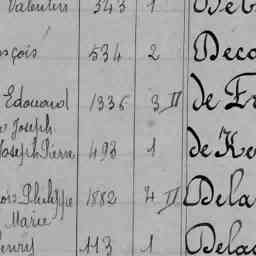 Valentin 543 1 Deb
nçois 534 2 Deco
Edouard 1336 3 II de Fr
Joseph
Joseph Pierre 493 1 de Ke
ois Philippe 1882 4 II Dela
Marie
Henri 113 1 Delac